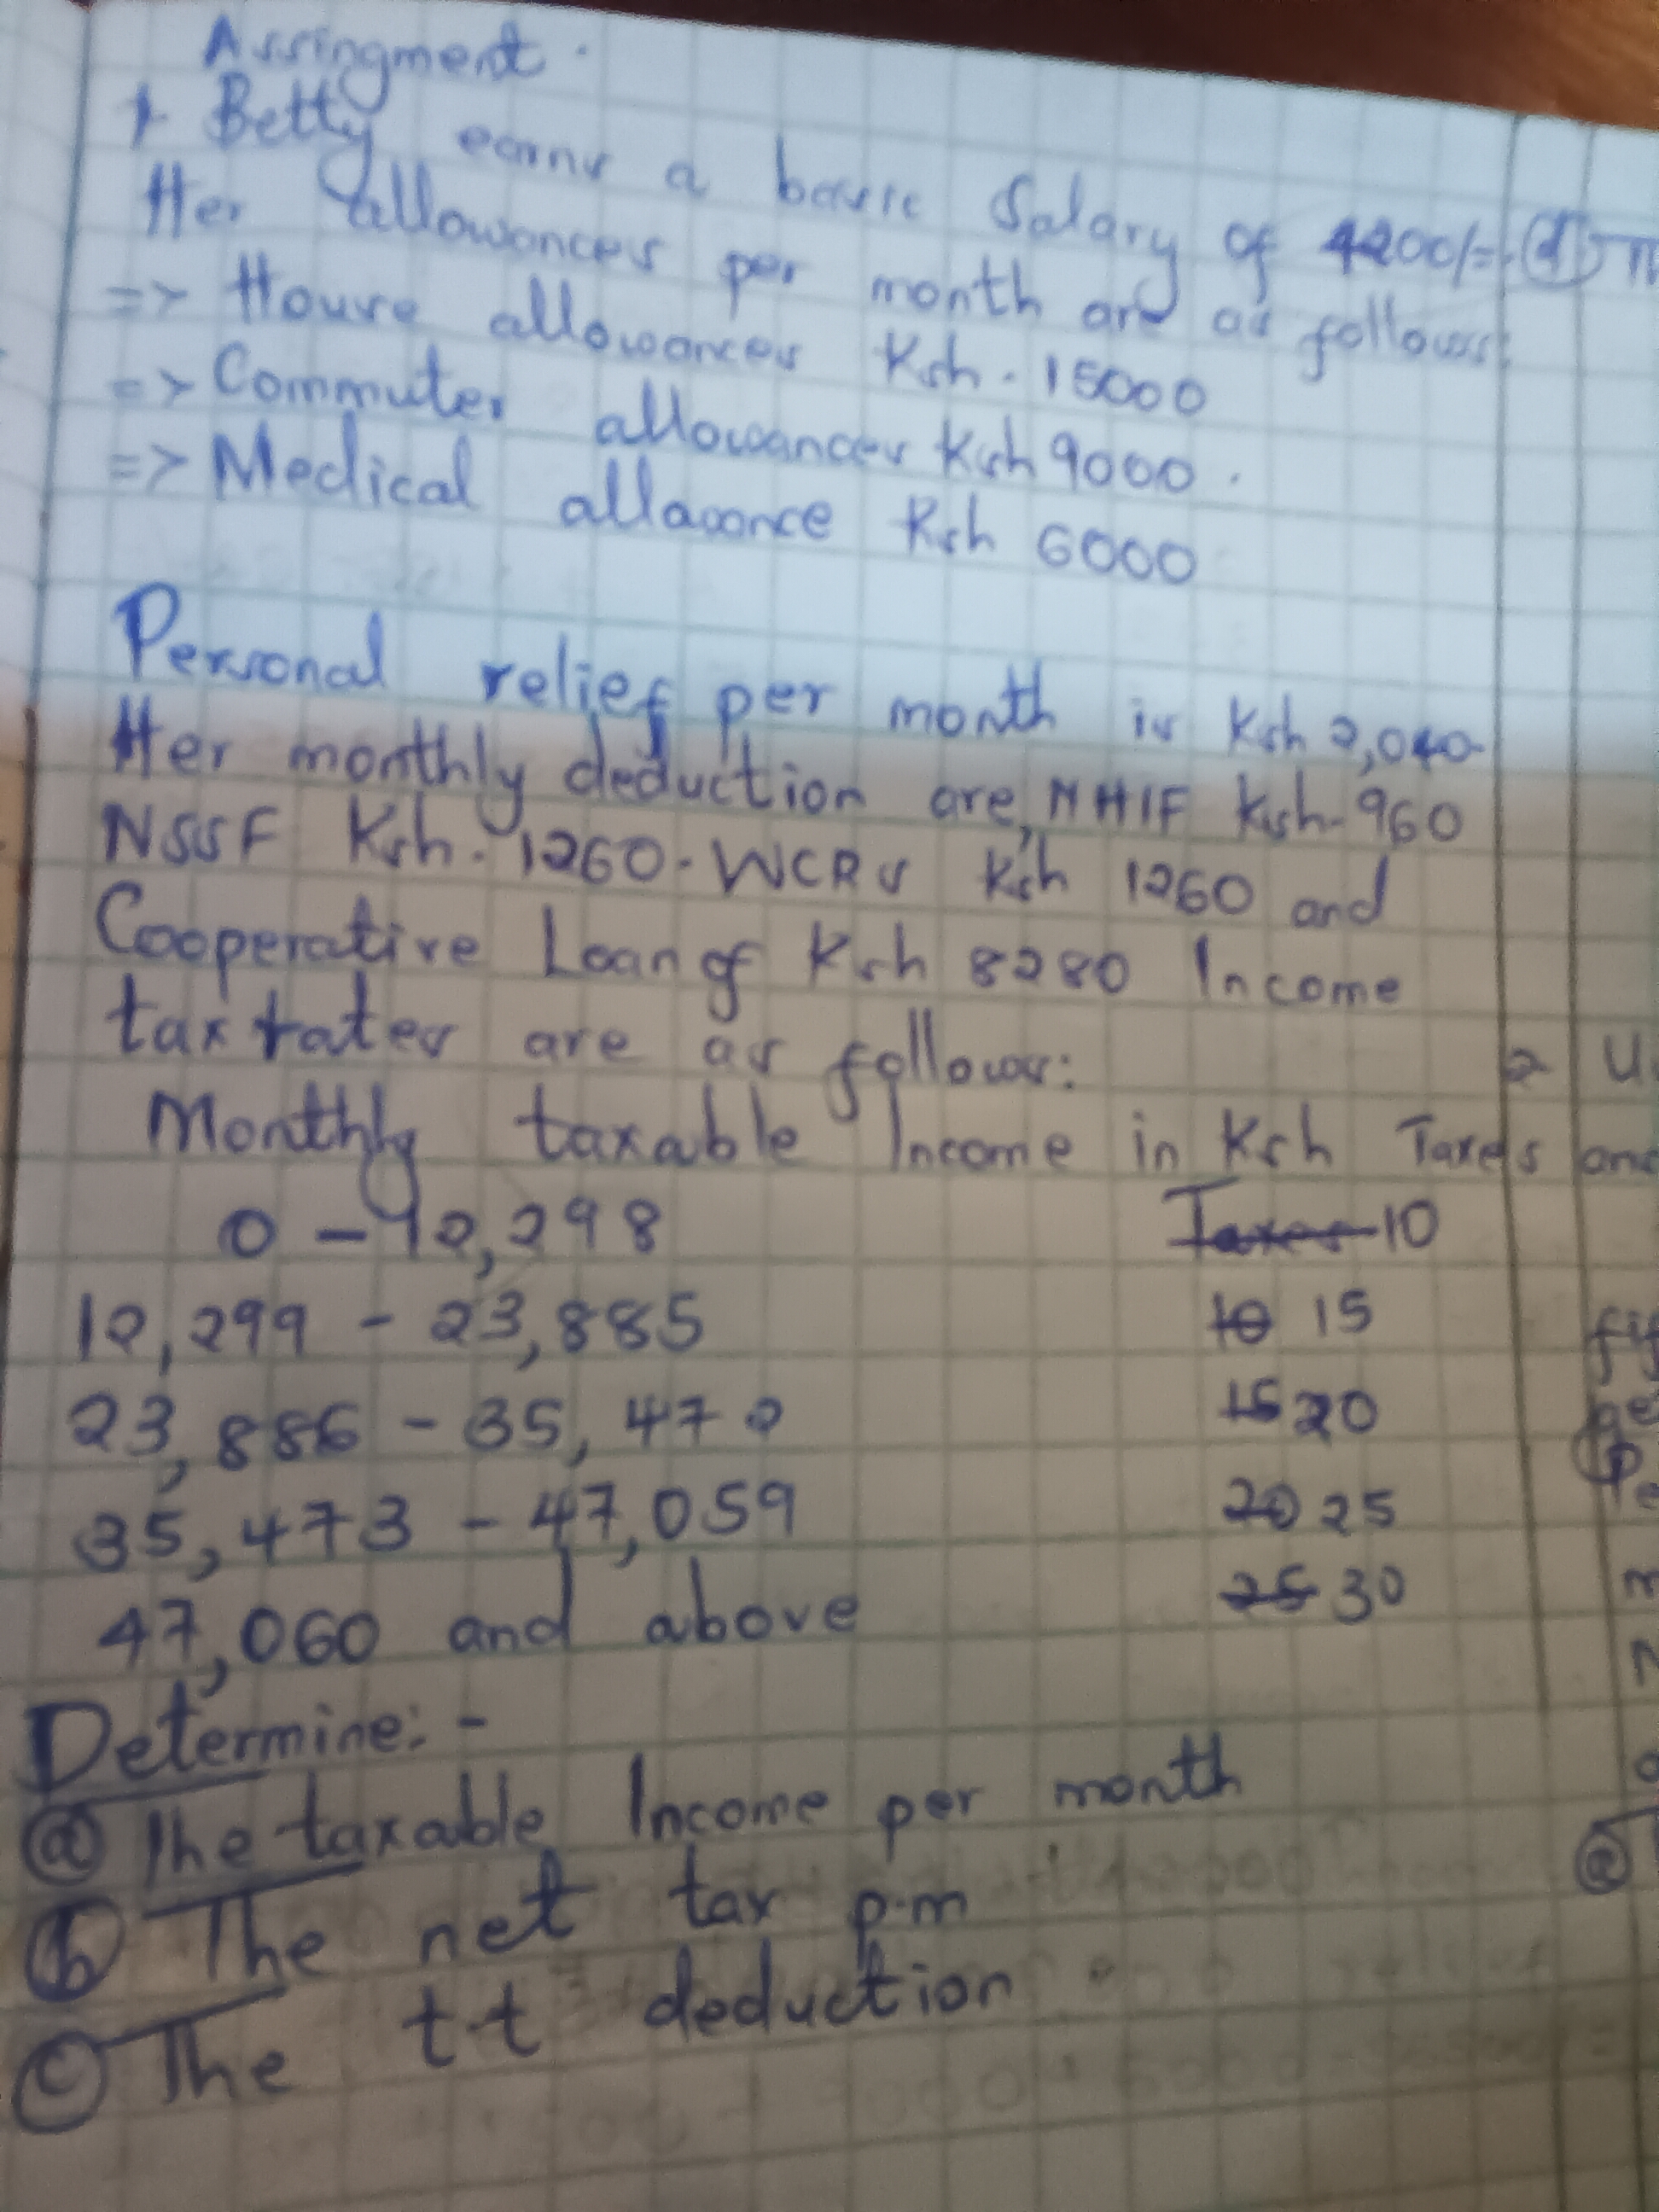 Assingment.
1. Betty earns a basic salary of 4200/=. (d) Th
Her allowances per month are as follows:
=> House allowances Ksh. 15000
=> Commuter allowances Ksh 9000.
=> Medical allawance Ksh 6000
Personal relief per month is Ksh 2,040
Her monthly deduction are, NHIF Ksh. 960
NSSF Ksh. 1260. WCPs Ksh 1260 and
Cooperative Loan of Ksh 8280 Income
tax rates are as follows:
2 U
Monthly taxable Income in Ksh Taxes and
0 - 12,298 Taxes 10
12,299 - 23,885 10 15
23,886 - 35,472 15 20
35,473 - 47,059 20 25
47,060 and above 25 30
Determine:-
(a) The taxable Income per month
(b) The net tax p.m
(c) The t.t deduction